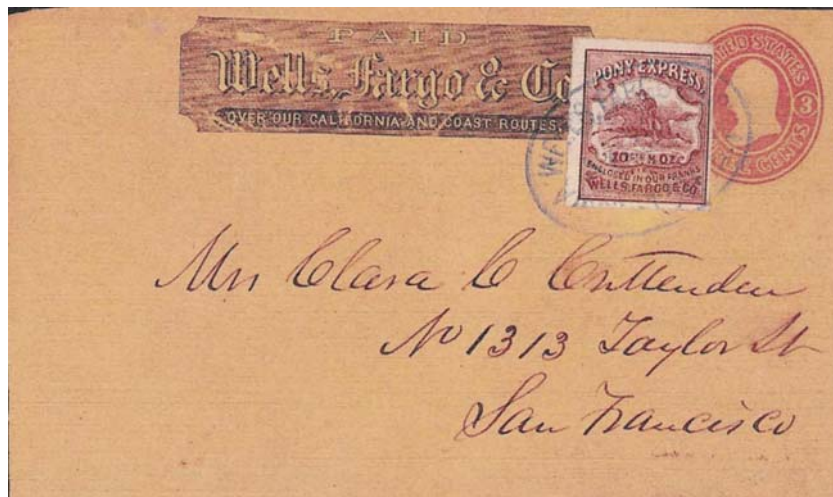 PAID
Wells, Fargo & Co
OVER OUR CALIFORNIA AND COAST ROUTES.
PONY EXPRESS.
ENCLOSED IN OUR FRANKS
WELLS, FARGO & CO.
UNITED STATES
3
CENTS
Mrs Clara C Crittenden
No 1313 Taylor St
San Francisco